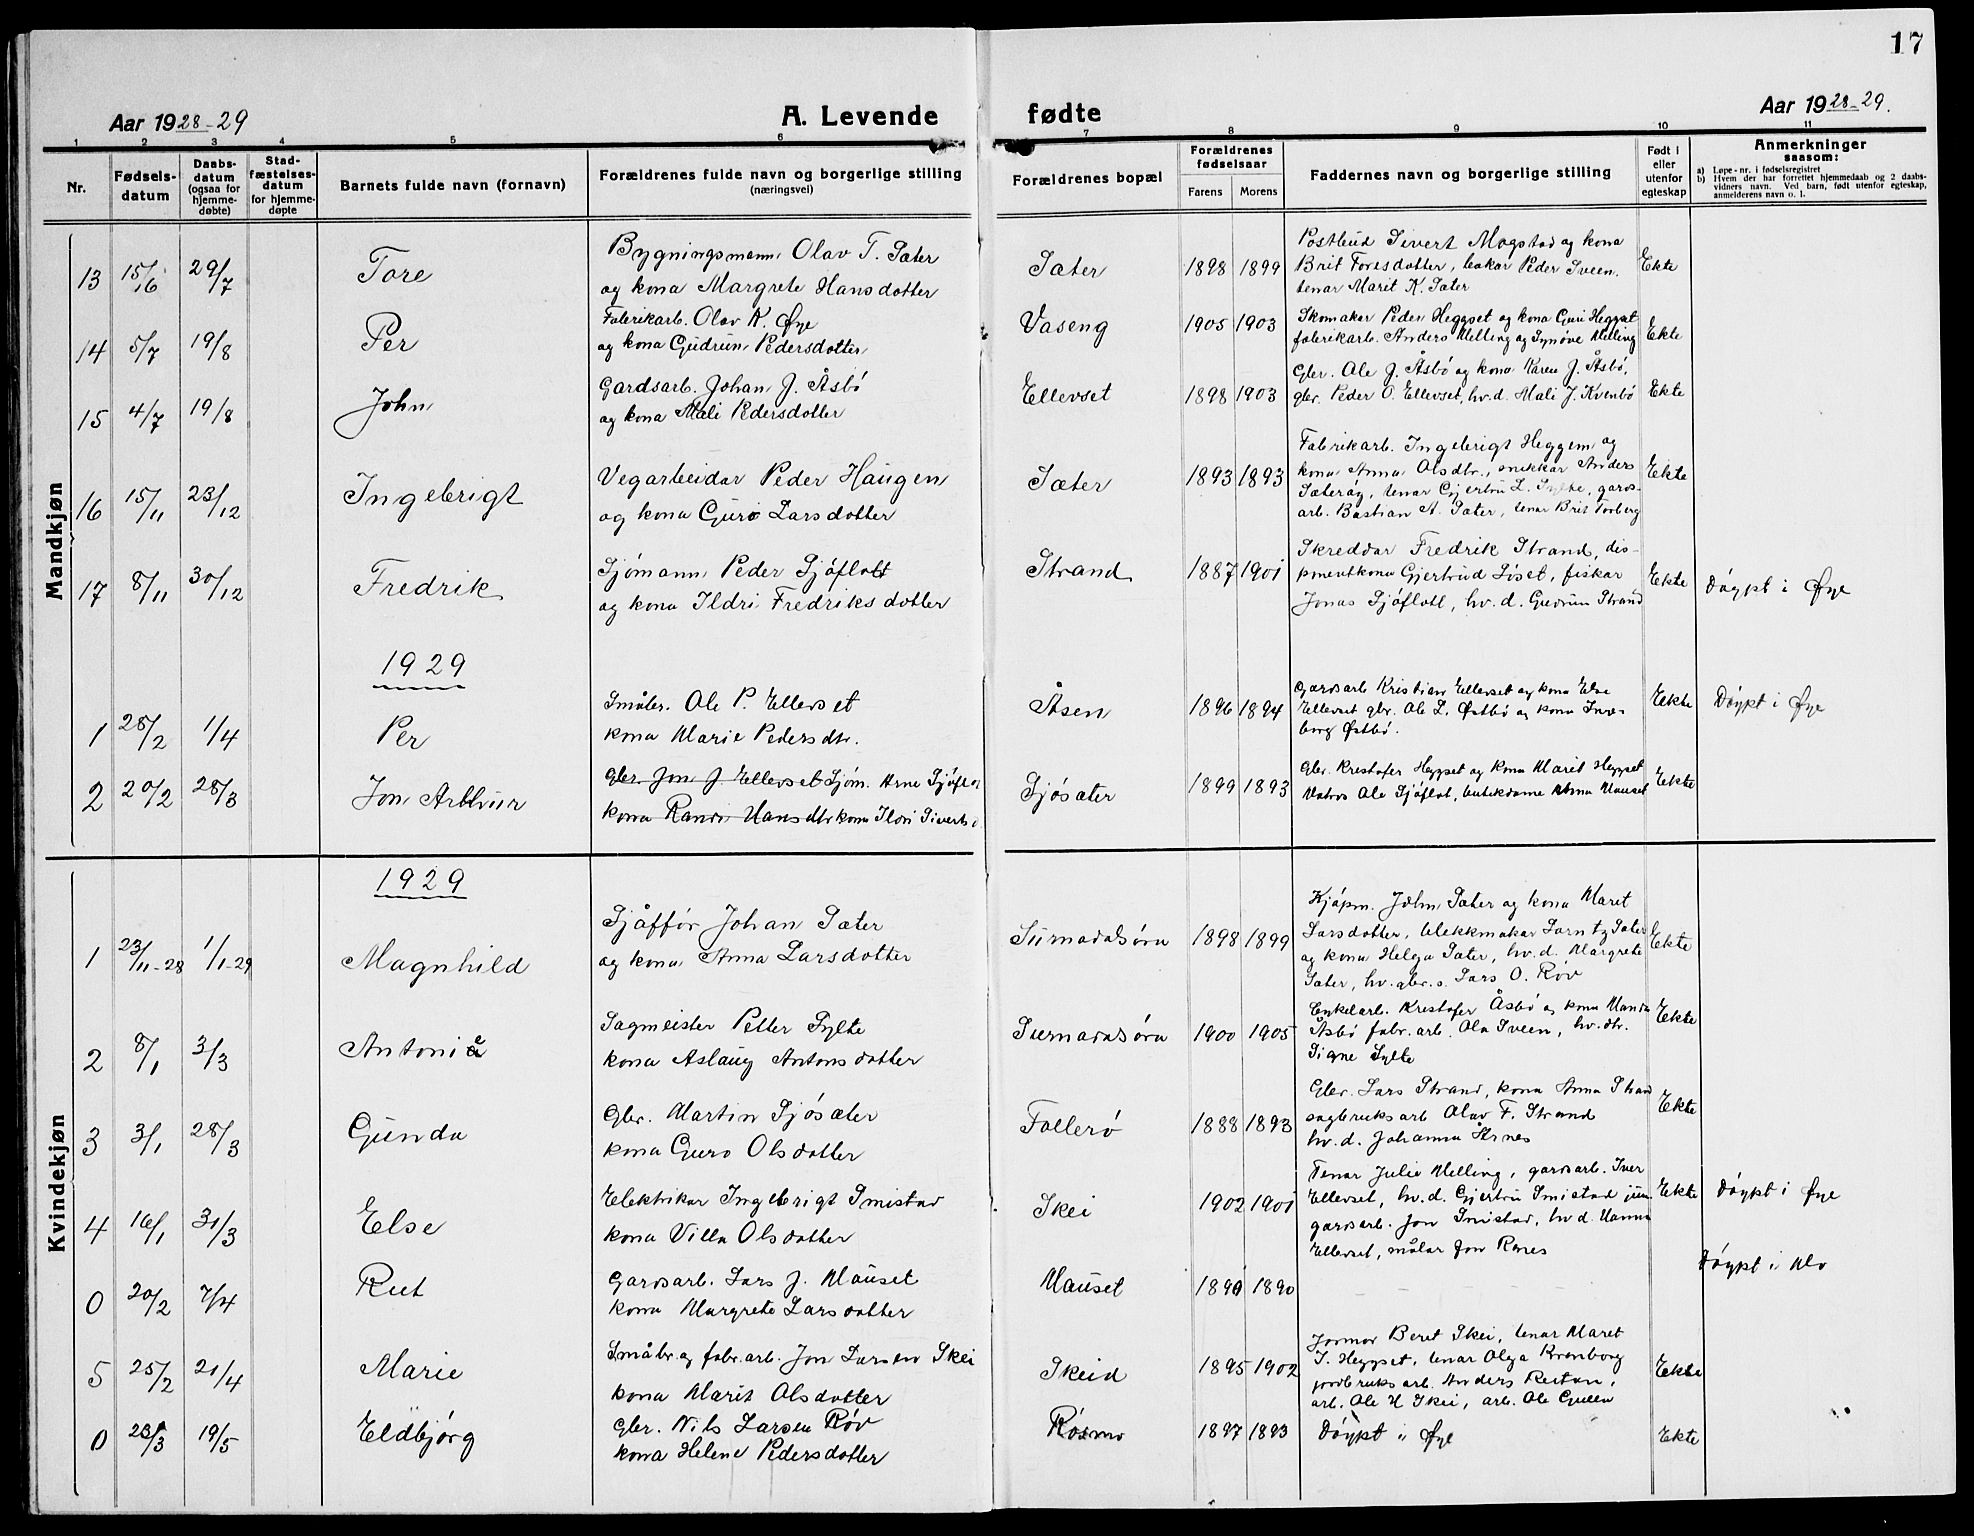 17
Aar 1928-29
A. Levende fødte
Aar 1928-29.
1 2 3 4 5 6 7 8 9 10 11
Nr.
Fødsels-
datum
Daabs-
datum
(ogsaa for
hjemme-
døbte)
Stad-
fæstelses-
datum
for hjemme-
døpte
Barnets fulde navn (fornavn)
Forældrenes fulde navn og borgerlige stilling
(næringsvei)
Forældrenes bopæl
Forældrenes
fødselsaar
Farens Morens
Faddernes navn og borgerlige stilling
Født i
eller
utenfor
egteskap
Anmerkninger
saasom:
a) Løpe-nr. i fødselsregistret
b) Hvem der har forrettet hjemmedaab og 2 daabs-
vidners navn. Ved barn, født utenfor egteskap,
anmelderens navn o. l.
Mandkjøn
13 15/6 29/7 Tore
Bygningsmann Olav T. Sæter
og kona Margrete Hansdotter
Sæter 1898 1899
Postbud Sivert Mogstad og kona
Brit Toresdotter, bakar Peder Sveen,
tenar Marit K. Sæter
Ekte
14 5/7 19/8 Per
Fabrikarb. Olav K. Øye
og kona Gudrun Pedersdotter
Vaseng 1905 1903
Skomakar Peder Heggset og kona Guri Heggset
fabrikarb. Anders Melling og Synøve Melling
Ekte
15 4/7 19/8 John
Gardsarb. Johan J. Åsbø
og kona Mali Pedersdotter
Ellevset 1898 1903
Gbr. Ole J. Åsbø og kona Karen J. Åsbø,
gbr. Peder O. Ellevset, hv.d. Mali J. Kvenbø
Ekte
16 15/11 23/12 Ingebrigt
Vegarbeidar Peder Haugen
og kona Guro Larsdotter
Sæter 1893 1893
Fabrikarb. Ingebrigt Heggem og
kona Anna Olsdtr., snikkar Anders
Sæterøy, tenar Gjertru L. Sylte, gards-
arb. Bastian A. Sæter, tenar Brit Torberg
Ekte
17 8/11 30/12 Fredrik
Sjømann Peder Sjøflott
og kona Ildri Fredriksdotter
Strand 1887 1901
Skreddar Fredrik Strand, dis-
ponentkona Gjertrud Søset, fiskar
Jonas Sjøflott, hv.d. Gudrun Strand
Ekte Døypt i Øye
1929
1 28/2 1/4 Per
Småbr. Ole P. Ellevset
kona Marie Pedersdtr.
Åsen 1896 1894
Gardsarb Kristian Ellevset og kona Else
Ellevset gbr. Ole L. Østbø og kona Inge-
borg Østbø.
Ekte Døypt i Øye
2 20/2 28/3 Jon Arthur
Gbr. Jon J. Ellevset Sjøm. Arne Sjøflot
kona Randi Hansdtr kona Ildri Siverts d.
Sjøsæter 1899 1893
Gbr. Kristofer Heggset og kona Marit Heggset
Matros Ole Sjøflot, butikdame Anna Mauset
Ekte
Kvindekjøn
1929
1 23/11-28 1/1-29 Magnhild
Sjåffør Johan Sæter
og kona Anna Larsdotter
Surnadalsøra 1898 1899
Kjøpm. John Sæter og kona Maret
Larsdotter, blekkmakar Sæter
og kona Helga Sæter, hv.d. Margrete
Sæter, hv. gbr.s. Lars O. Røv
Ekte
2 8/1 3/3 Antonie
Sagmeister Petter Sylte
kona Aslaug Antonsdotter
Surnadalsøra 1900 1905
Enkelarb. Kristofer Åsbø og kona Manda
Åsbø fabr. arb. Ola Sveen, hv. dtr.
Signe Sylte
Ekte
3 3/1 28/3 Gunda
Gbr. Martin Sjøsæter
kona Guro Olsdotter
Follerø 1888 1893
Gbr. Lars Strand, kona Anna Strand
sagbruksarb Olav F. Strand
hv.d. Johanna Årnes
Ekte
4 16/1 31/3 Else
Elektrikar Ingebrigt Smistad
kona Villa Olsdotter
Skei 1902 1901
Tenar Julie Melling, gardsarb. Iver
Ellevset, hv.d. Gjertru Smistad jun.
gardsarb. Jon Smistad, hv.d. Hanna
Ellevset, målar Jon Renes
Ekte Døypt i Øye
0 20/2 7/4 Rut
Gardsarb. Lars J. Mauset
kona Margrete Larsdotter
Mauset 1890 1890
- - -
Døypt i Mo
5 25/2 21/4 Marie
Småbr. og fabr.arb. Jon Larsen Skei
kona Marit Olsdotter
Skeid 1895 1902
Jormor Beret Skei, tenar Maret
J. Heggset, tenar Olga Kvenborg
jordbruksarb. Anders Rustan,
arb. Ole H Skei, arb. Ole Gulen
Ekte
0 23/3 19/5 Eldbjørg
Gbr. Nils Larsen Røv
kona Helene Pedersdotter
Røsmo 1897 1893
Døypt i Øye
Ekte